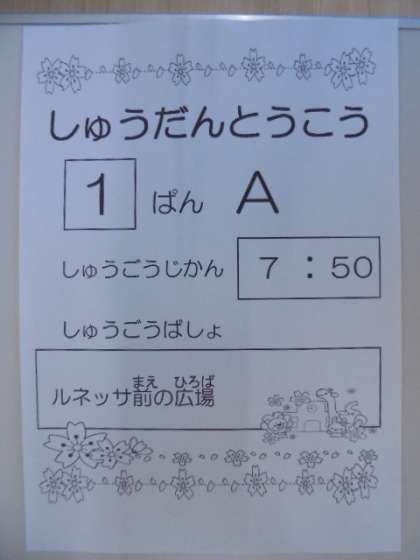 しゅうだんとうこう
1 ぱん A
しゅうごうじかん 7:50
しゅうごうばしょ
まえ ひろば
ルネッサ前の広場